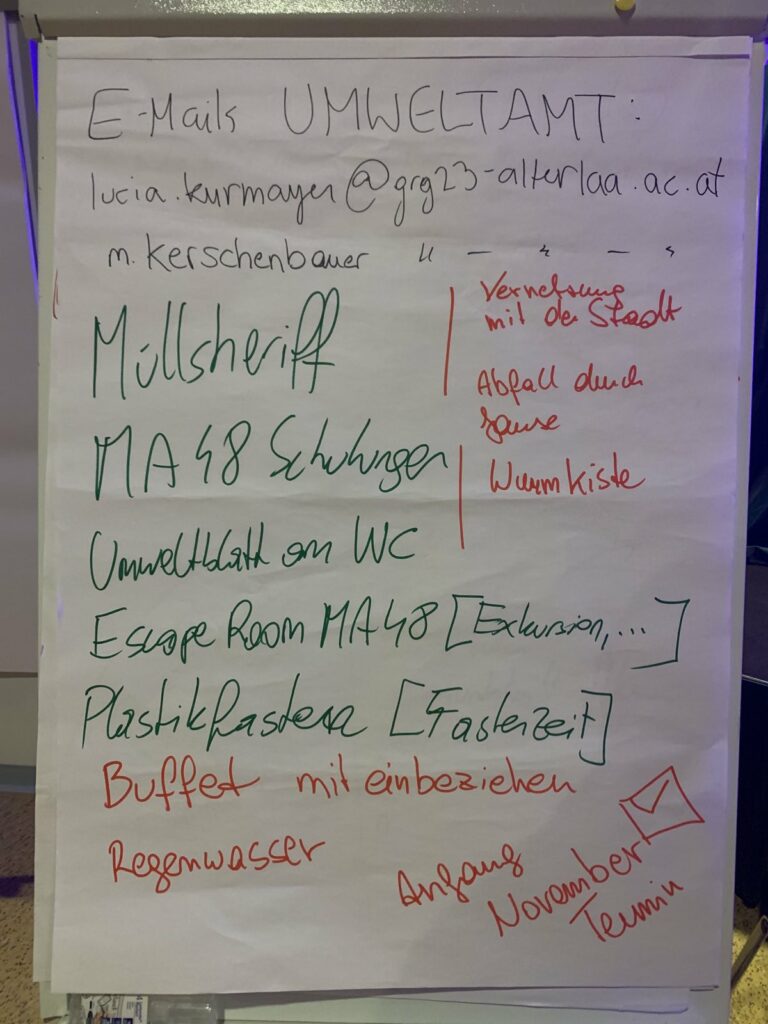 E-Mails UMWELTAMT:
lucia.kurmayer@grg23-alterlaa.ac.at
m.kerschenbauer " – " – "
Müllsheriff
Vernetzung
mit der Stadt
Abfall durch
Jause
MA48 Schulungen
Wurmkiste
Umweltblatt am WC
Escape Room MA48 [Exkursion, ...]
Plastikfasten [Fastenzeit]
Buffet mit einbeziehen
Regenwasser
Anfang
November
Termin